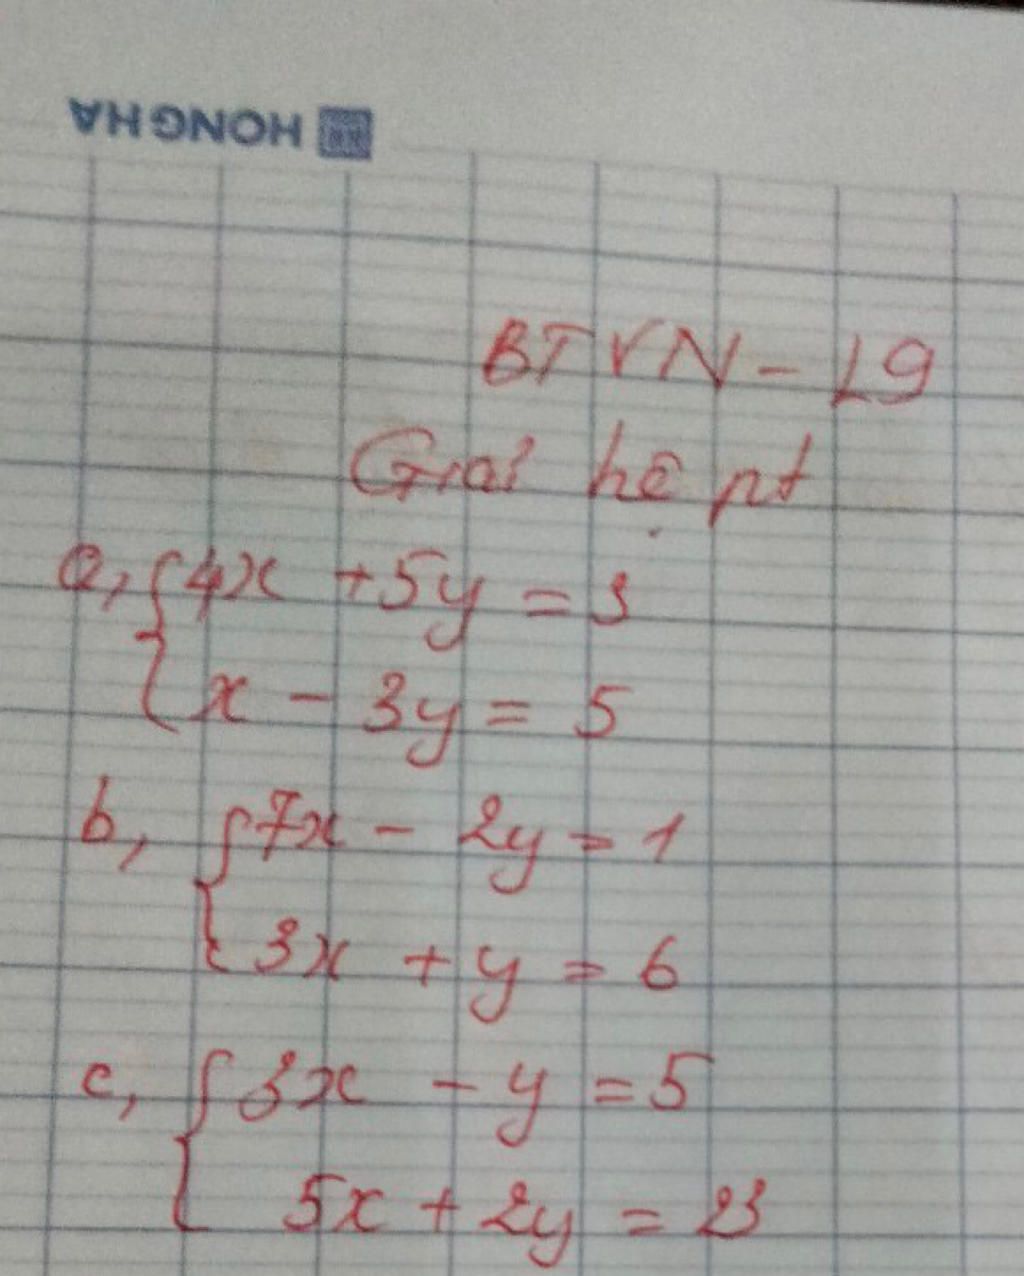 HONG HA
BTVN - L9
Giải hệ pt
a, { 4x + 5y = 3
x - 3y = 5
b, { 7x - 2y = 1
3x + y = 6
c, { 3x - y = 5
5x + 2y = 23